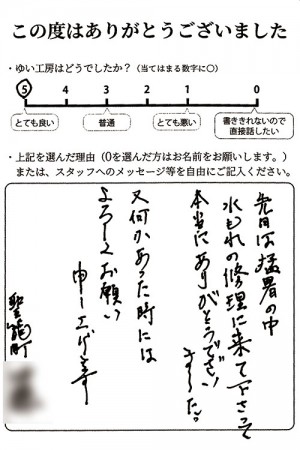 この度はありがとうございました
・ゆい工房はどうでしたか？（当てはまる数字に○）
5 4 3 2 1 0
とても良い 普通 とても悪い 書ききれないので直接話したい
・上記を選んだ理由（0を選んだ方はお名前をお願いします。）
または、スタッフへのメッセージ等を自由にご記入ください。
先日は猛暑の中
水もれの修理に来て下さって
本当にありがとうござい
ました。
又何かあった時には
よろしくお願い
申し上げます
聖籠町